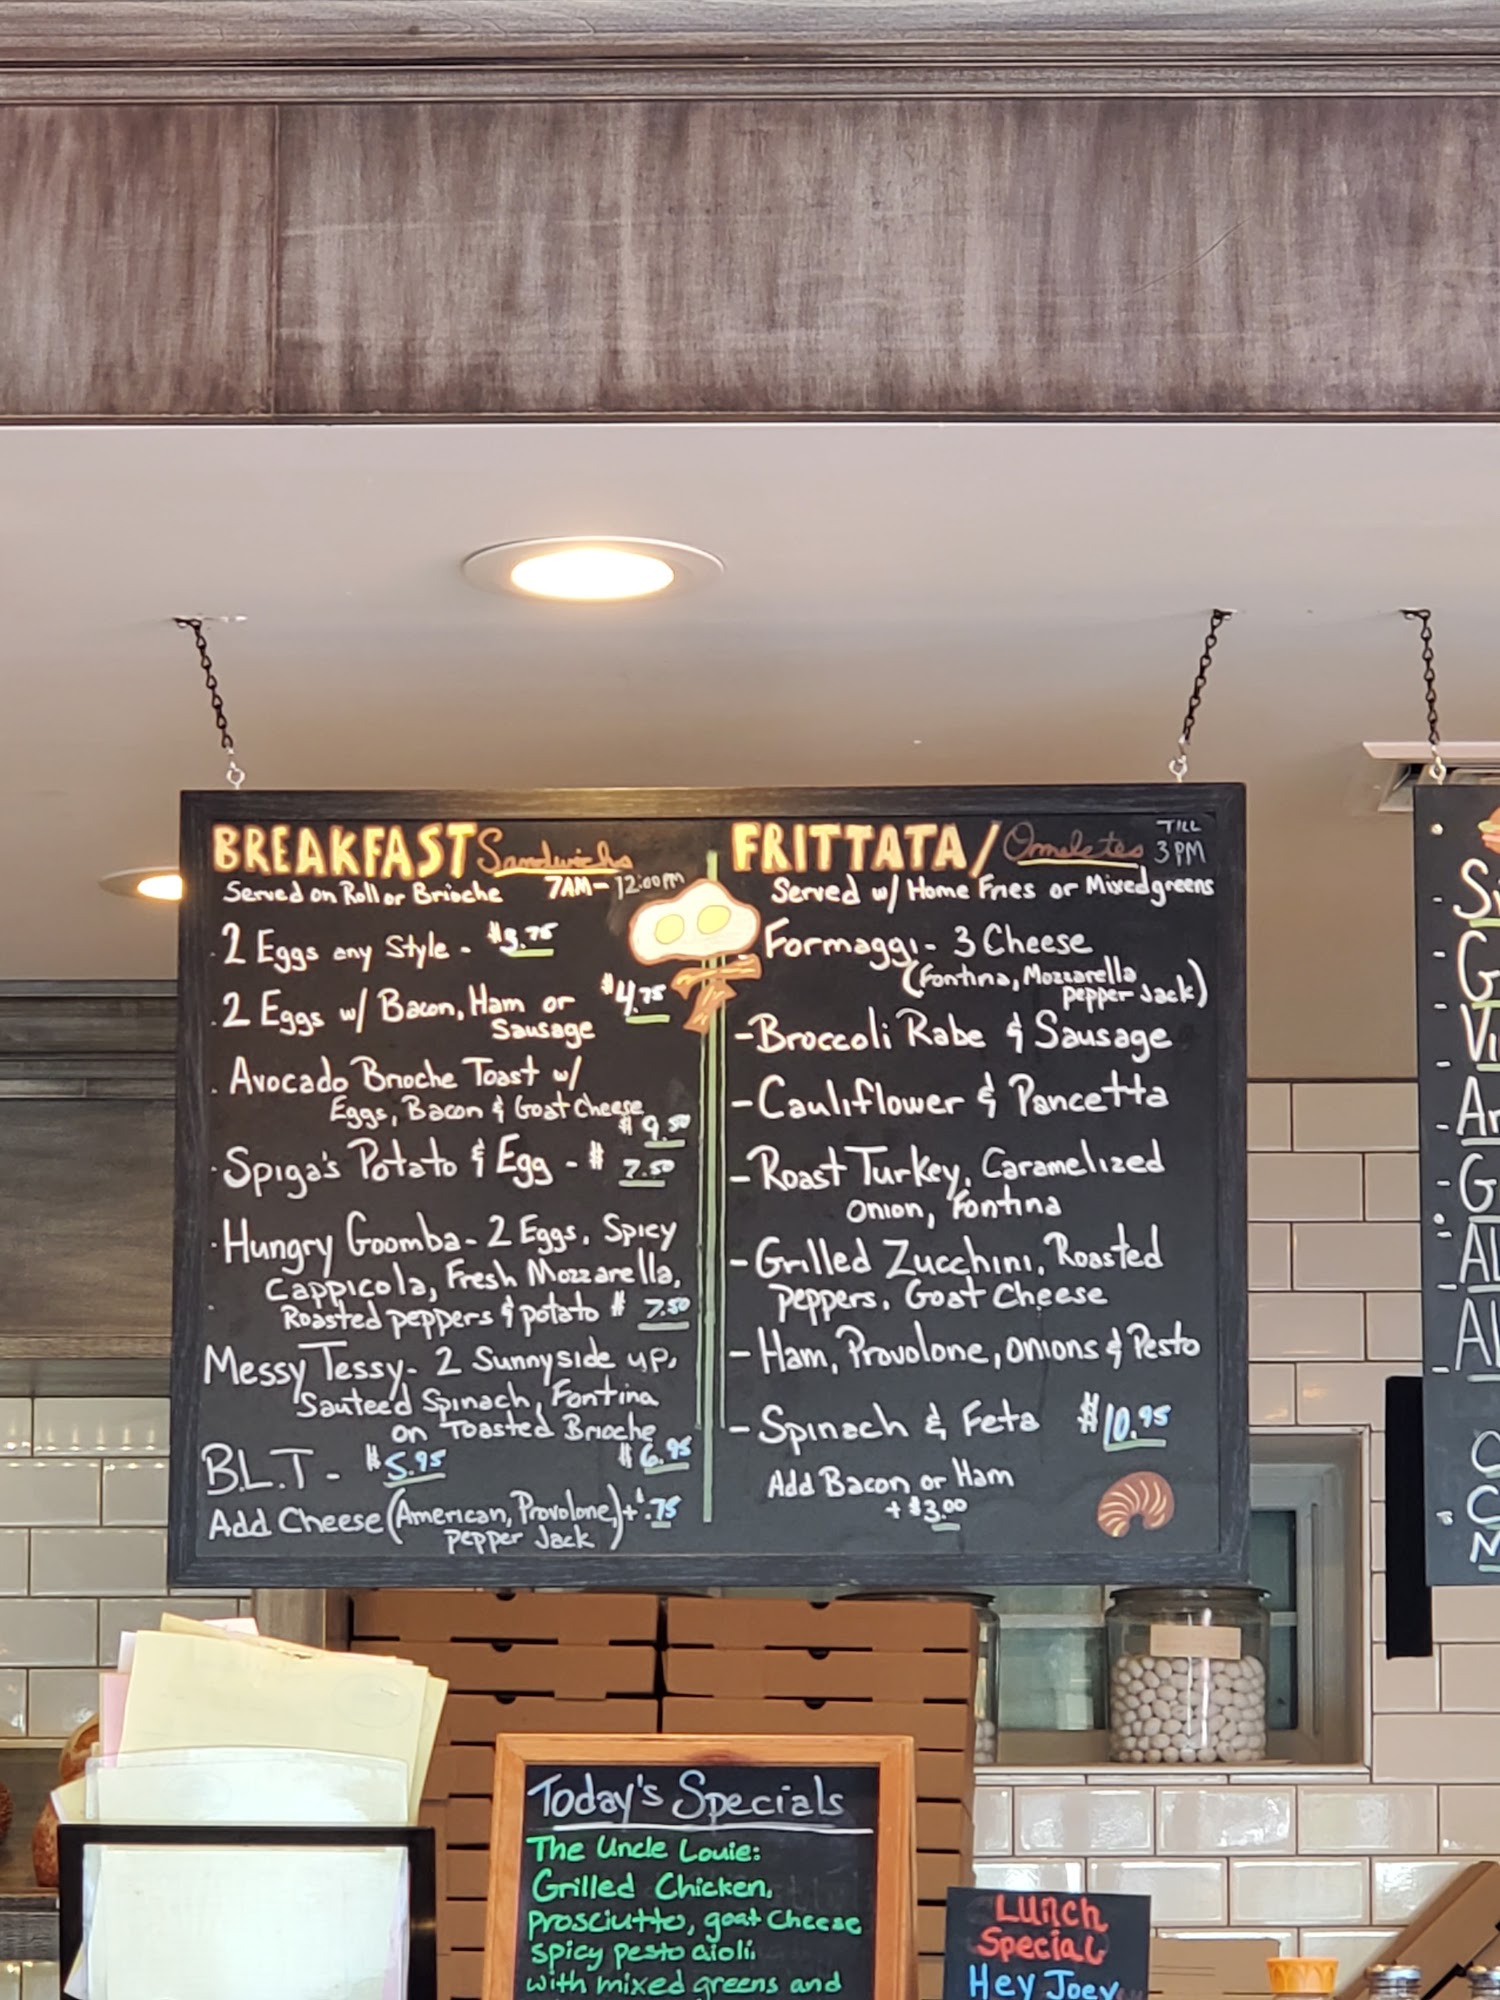 BREAKFAST Sandwichs
Served on Roll or Brioche 7AM - 12:00pm
- 2 Eggs any Style - $3.75
- 2 Eggs w/ Bacon, Ham or $4.75
Sausage
- Avocado Brioche Toast w/
Eggs, Bacon & Goat Cheese
$9.50
- Spiga's Potato & Egg - $7.50
- Hungry Goomba - 2 Eggs, Spicy
Cappicola, Fresh Mozzarella,
Roasted peppers & potato $7.50
Messy Tessy - 2 Sunnyside up,
Sauteed Spinach, Fontina
on Toasted Brioche
$6.95
B.L.T - $5.95
Add Cheese (American, Provolone, + $.75
pepper Jack)
FRITTATA/Omeletes TILL
3PM
Served w/ Home Fries or Mixedgreens
Formaggi - 3 Cheese
(Fontina, Mozzarella
pepper Jack)
- Broccoli Rabe & Sausage
- Cauliflower & Pancetta
- Roast Turkey, Caramelized
onion, Fontina
- Grilled Zucchini, Roasted
peppers, Goat Cheese
- Ham, Provolone, onions & Pesto
- Spinach & Feta $10.95
Add Bacon or Ham
+ $3.00
Today's Specials
The Uncle Louie:
Grilled Chicken,
prosciutto, goat cheese
spicy pesto aioli
with mixed greens and
Lunch
Special
Hey Joey